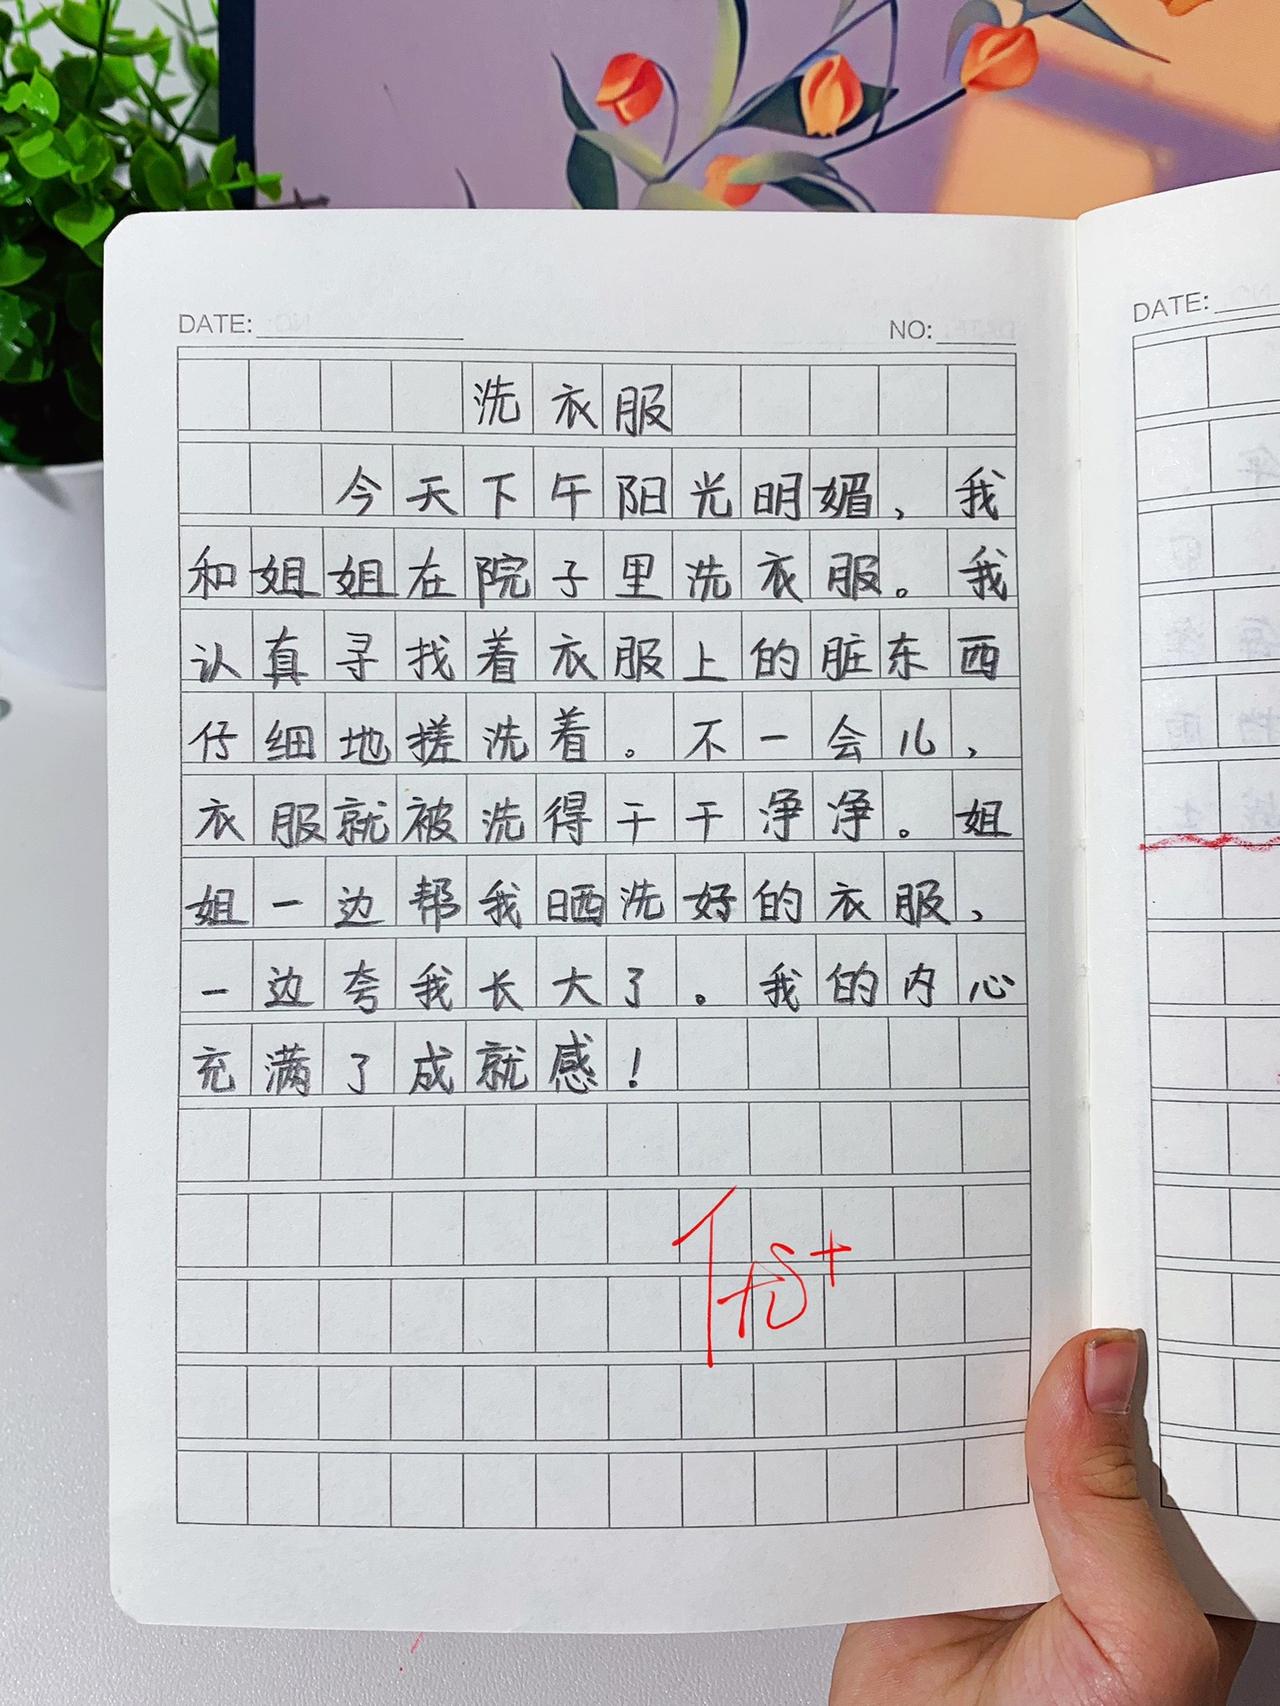 DATE:
NO:
洗衣服
今天下午阳光明媚，我
和姐姐在院子里洗衣服。我
认真寻找着衣服上的脏东西
仔细地搓洗着。不一会儿，
衣服就被洗得干干净净。姐
姐一边帮我晒洗好的衣服，
一边夸我长大了。我的内心
充满了成就感！
优+
DATE: